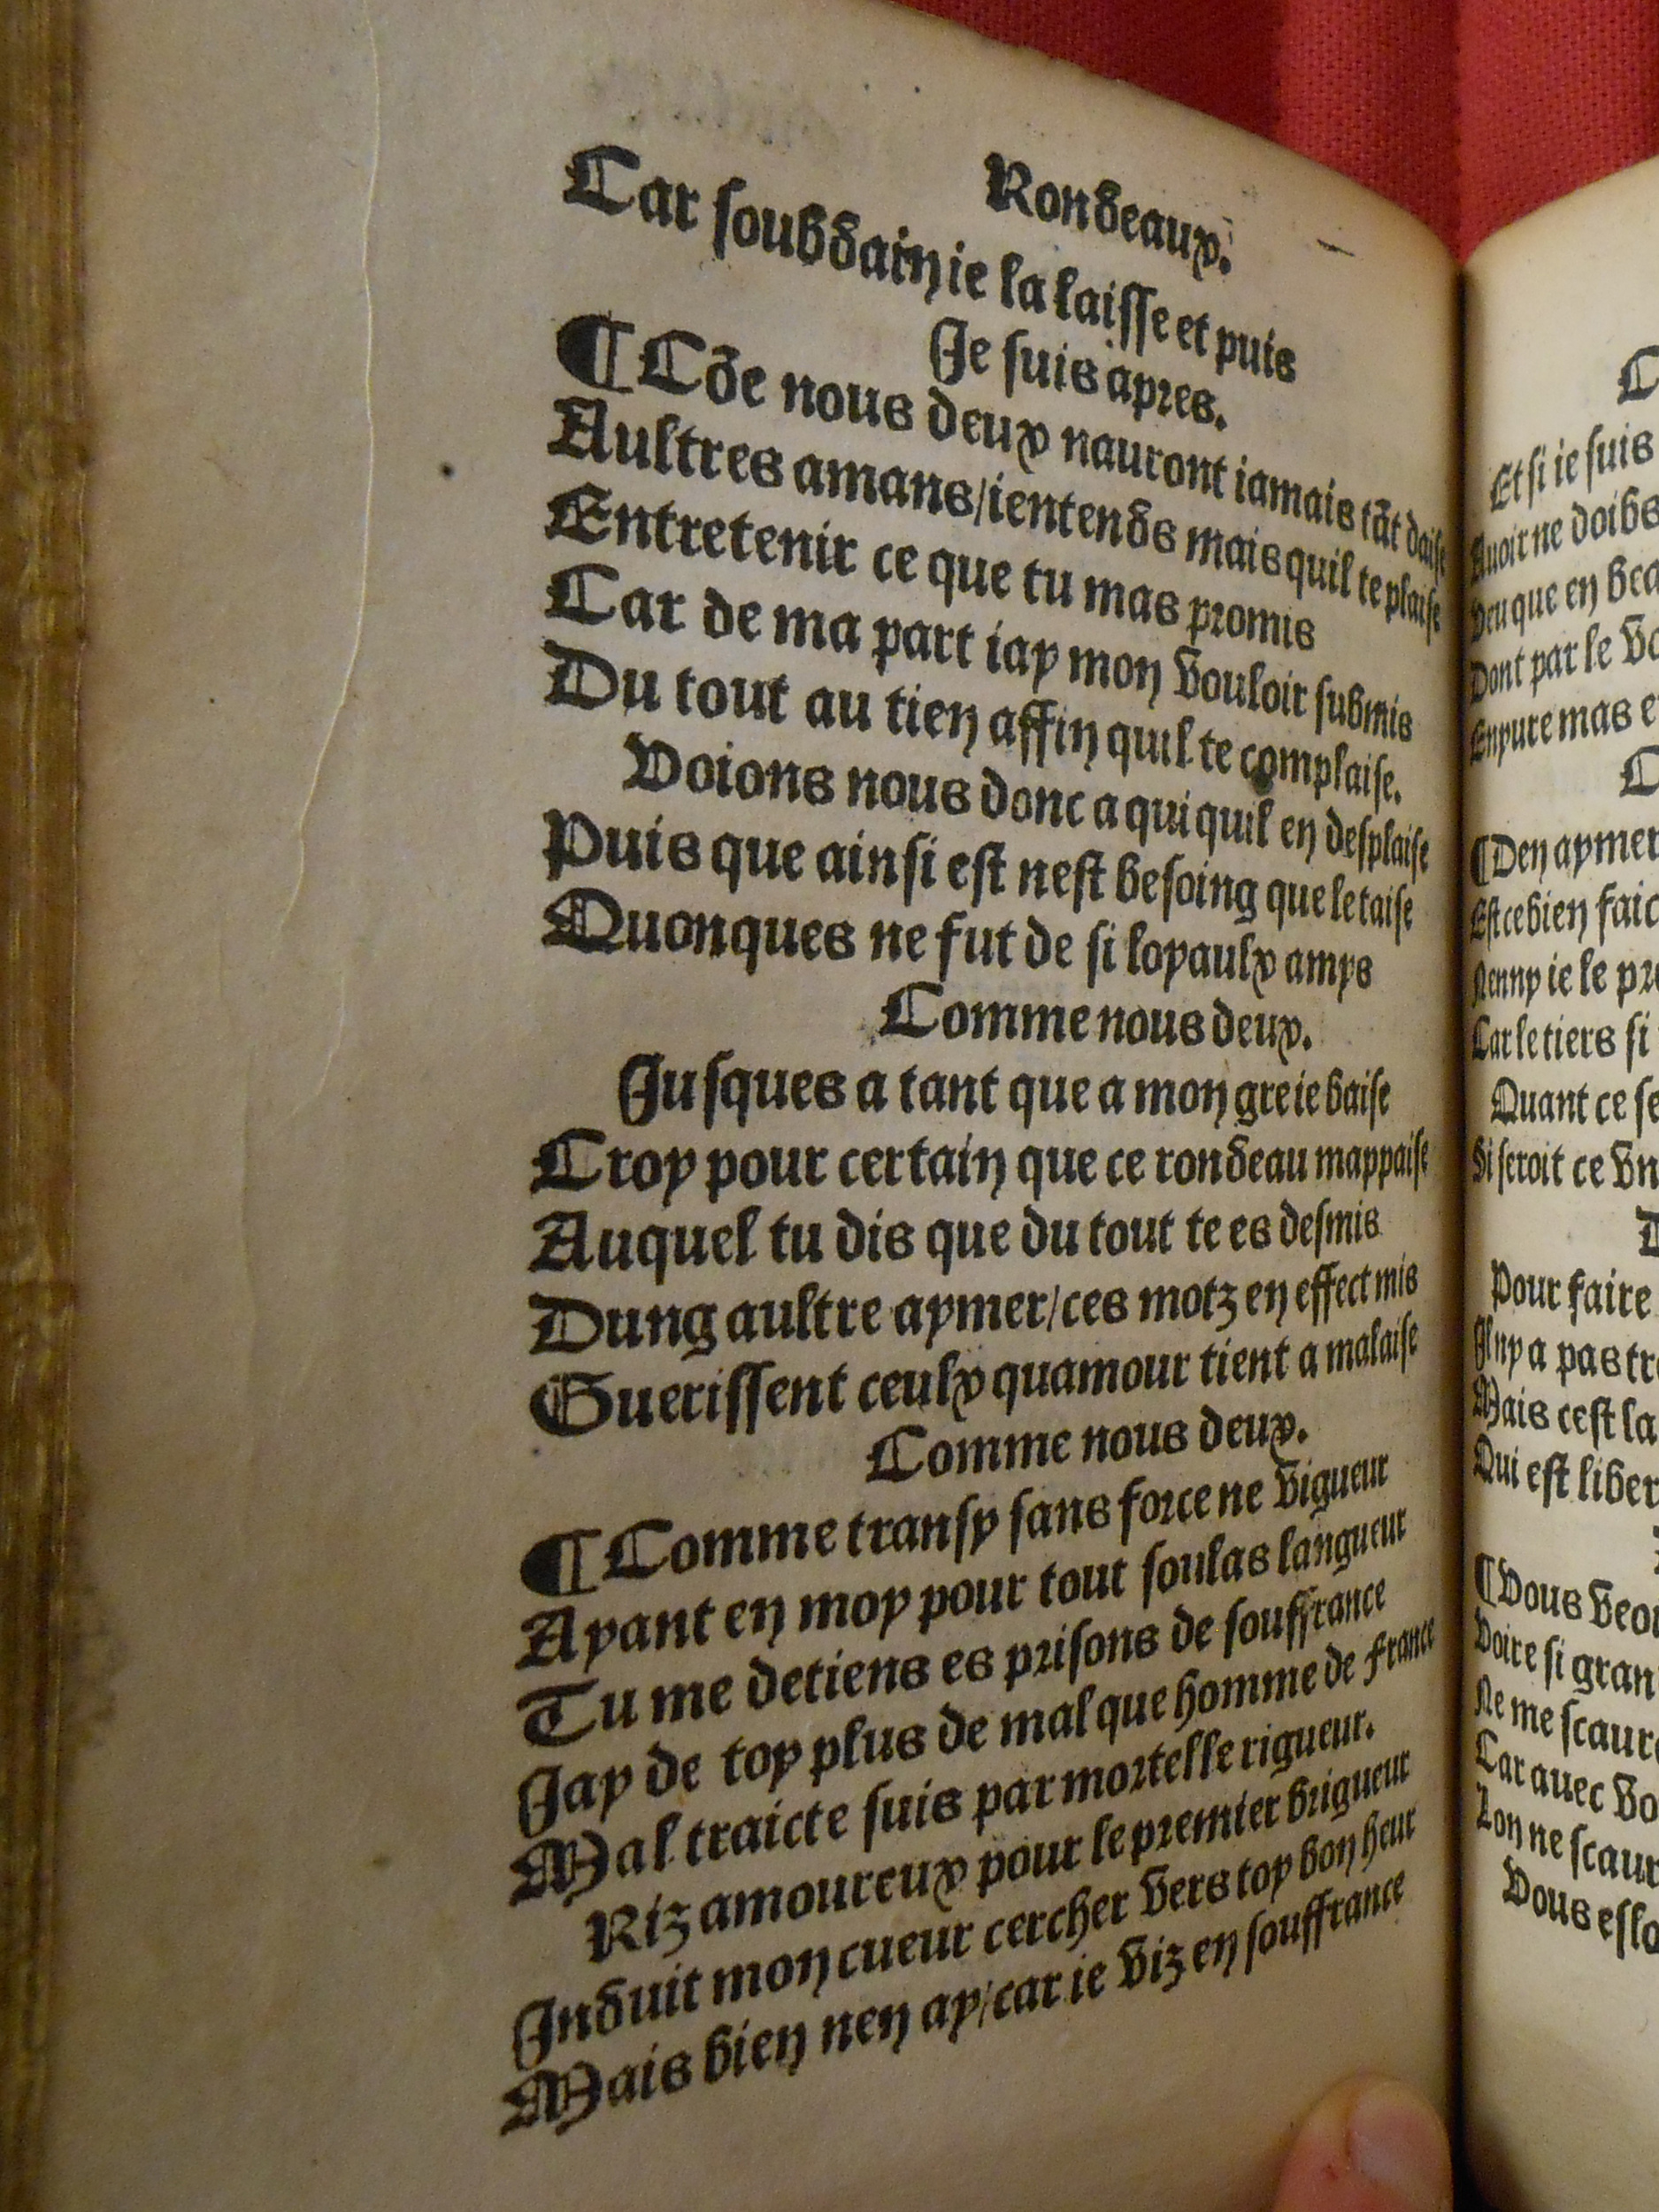 Rondeaux.
Car soubdain ie la laisse et puis
Je suis apres.
¶ Cõe nous deux nauront iamais tãt daise
Aultres amans/ientends mais quil te plaise
Entretenir ce que tu mas promis
Car de ma part iay mon vouloir submis
Du tout au tien affin quil te complaise.
Voions nous donc a qui quil en desplaise
Puis que ainsi est nest besoing que le taise
Quonques ne fut de si loyaulx amys
Comme nous deux.
Jusques a tant que a mon gre ie baise
Croy pour certain que ce rondeau mappaise
Auquel tu dis que du tout te es desmis
Dung aultre aymer/ces motz en effect mis
Guerissent ceulx quamour tient a malaise
Comme nous deux.
¶ Comme transy sans force ne vigueur
Ayant en moy pour tout soulas langueur
Tu me detiens es prisons de souffrance
Jay de toy plus de mal que homme de France
Mal traicte suis par mortelle rigueur.
Riz amoureux pour le premier brigueur
Induit mon cueur cercher vers toy bon heur
Mais bien nen ay/car ie viz en souffrance
Et si ie suis
Auoir ne doibs
Veu que en
Dont par le
Enyure mas
¶ Den aymer
Est ce bien faic
Nenny ie le
Car le tiers si
Quant ce
Si seroit ce vn
Pour faire
Il ny a pas
Mais cest la
Qui est
¶ Vous
Voire si
Ne me
Car auec
Lon ne
Vous